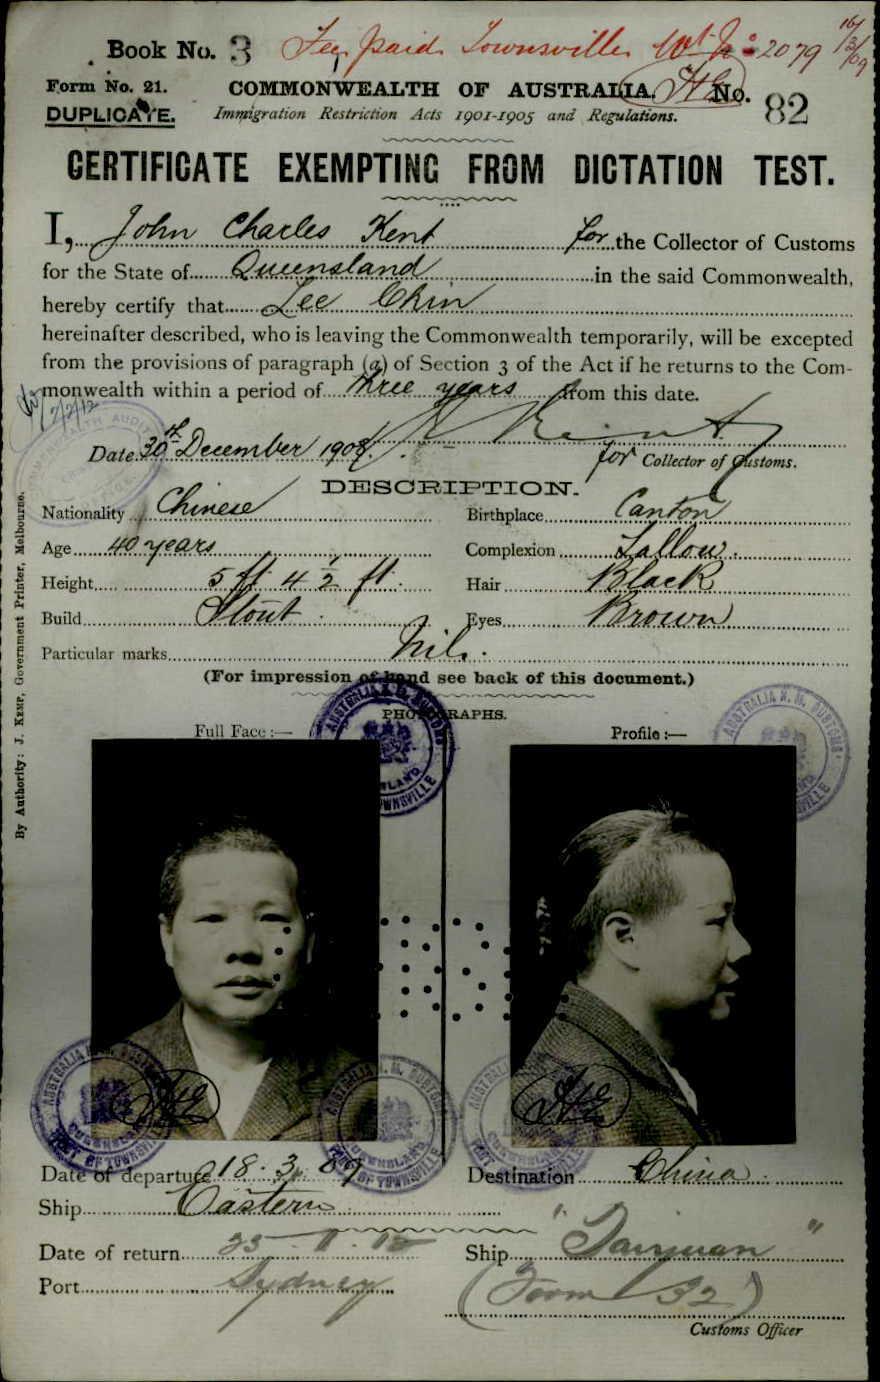 Book No. 3 Fee paid Townsville 2079 16/3/09
Form No. 21. COMMONWEALTH OF AUSTRALIA. No. 82
DUPLICATE. Immigration Restriction Acts 1901-1905 and Regulations.
CERTIFICATE EXEMPTING FROM DICTATION TEST.
I, John Charles Kent for the Collector of Customs
for the State of Queensland in the said Commonwealth,
hereby certify that Lee Chin
hereinafter described, who is leaving the Commonwealth temporarily, will be excepted
from the provisions of paragraph (a) of Section 3 of the Act if he returns to the Com-
monwealth within a period of three years from this date.
Date 30th December 1908. J. C. Kent
for Collector of Customs.
DESCRIPTION.
Nationality Chinese Birthplace Canton
Age 40 years Complexion Sallow.
Height 5 ft 4 1/2 ft. Hair Black
Build Stout Eyes Brown
Particular marks Nil.
(For impression of hand see back of this document.)
PHOTOGRAPHS.
Full Face :— Profile :—
By Authority: J. Kemp, Government Printer, Melbourne.
AUSTRALIA H. M. CUSTOMS
QUEENSLAND
PORT OF TOWNSVILLE
Date of departure 18. 3. 09 Destination China
Ship Eastern
Date of return 25. 11. 12 Ship "Taiyuan"
Port Sydney (Form 32)
Customs Officer